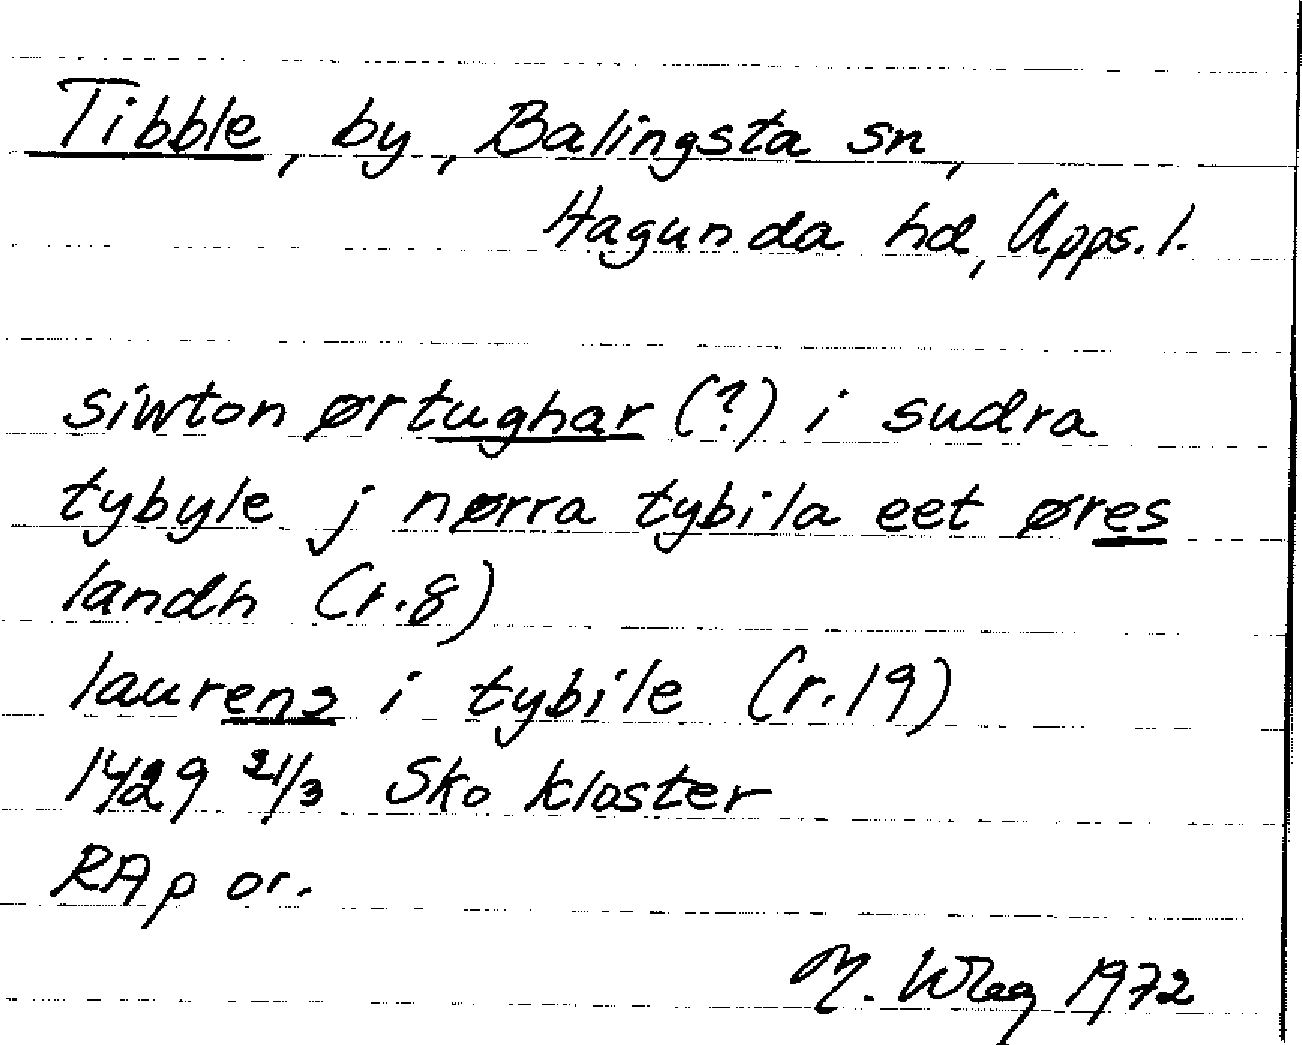 Tibble, by, Balingsta sn,
Hagunda hd, Upps. l.
siwton ørtughar (?) i sudra
tybyle j nørra tybila eet øres
landh (r. 8)
laurens i tybile (r. 19)
1429 21/3 Sko kloster
RAp or.
M. 1972